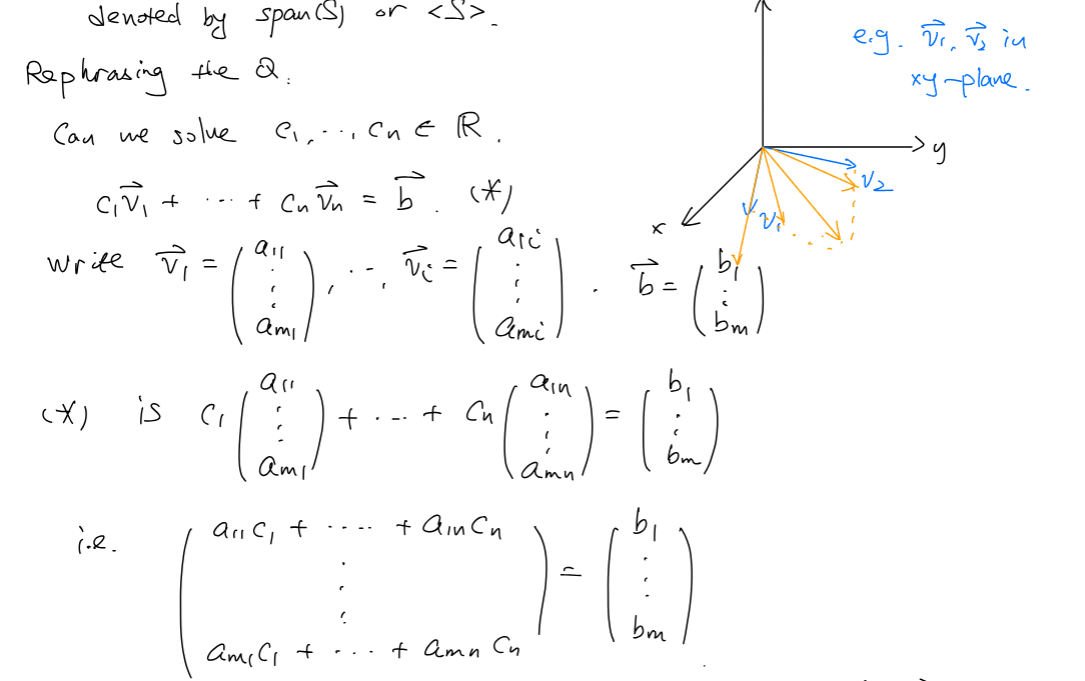 denoted by span(S) or <S>.
Rephrasing the Q.
Can we solve c₁, ..., cₙ ∈ ℝ.
c₁v⃗₁ + ... + cₙv⃗ₙ = b⃗. (*)
write v⃗₁ = (a₁₁ ⋮ aₘ₁), ..., v⃗ᵢ = (a₁ᵢ ⋮ aₘᵢ). b⃗ = (b₁ ⋮ bₘ)
(*) is c₁ (a₁₁ ⋮ aₘ₁) + ... + cₙ (a₁ₙ ⋮ aₘₙ) = (b₁ ⋮ bₘ)
i.e. (a₁₁c₁ + .... + a₁ₙcₙ ⋮ aₘ₁c₁ + ... + aₘₙcₙ) = (b₁ ⋮ bₘ)
e.g. v⃗₁, v⃗₂ in
xy-plane.
y
v₂
x
v₁